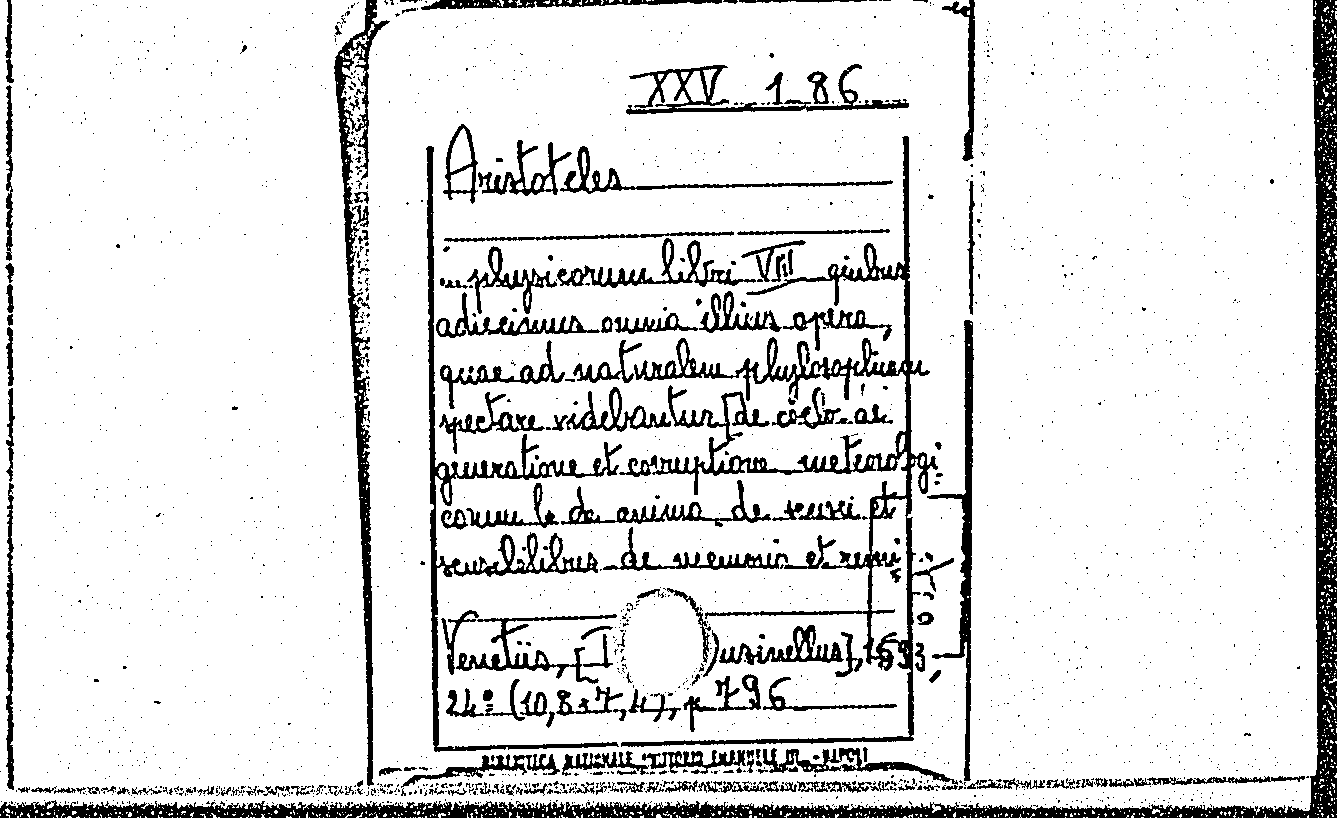 XXV 186
Aristoteles
... physicorum libri VIII quibus
adiecimus omnia illius opera,
quae ad naturalem phylosophiam
spectare videbantur [de coelo. de
generatione et corruptione meteorologi=
corum l. de anima. de sensu et
sensibilibus de memoria et remi=
Venetiis, [I usinellus], 1593,
24º (10,8x7,4), p 796
BIBLIOTECA NAZIONALE VITTORIO EMANUELE III - NAPOLI